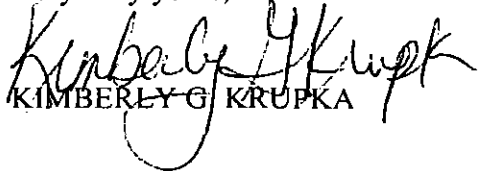 Kimberly G Krupk
KIMBERLY G. KRUPKA